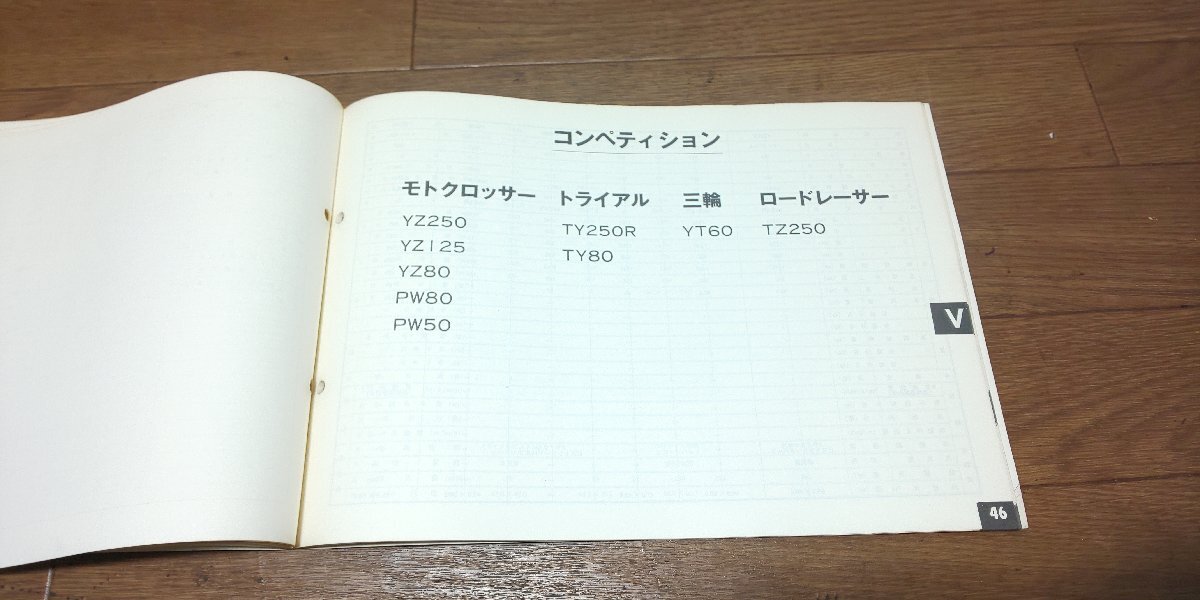 コンペティション
モトクロッサー トライアル 三輪 ロードレーサー
YZ250 TY250R YT60 TZ250
YZ125 TY80
YZ80
PW80
PW50
V
46